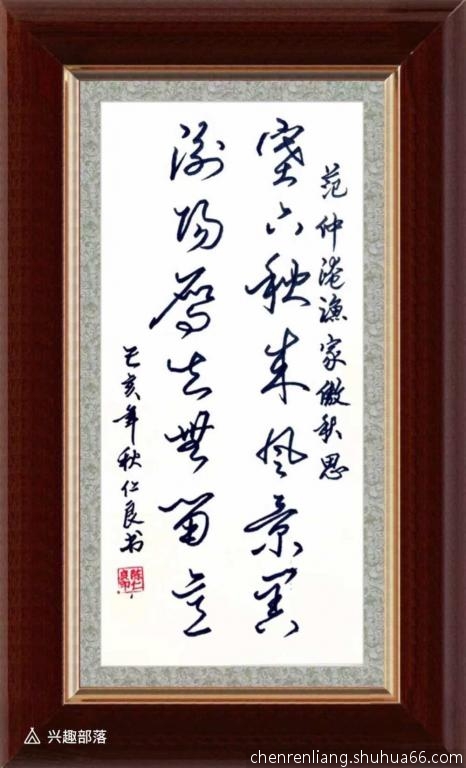 范仲淹漁家傲秋思
塞下秋来風景異
衡陽雁去無留意
己亥年秋仁良书
陈仁良印
兴趣部落
chenrenliang.shuhua66.com